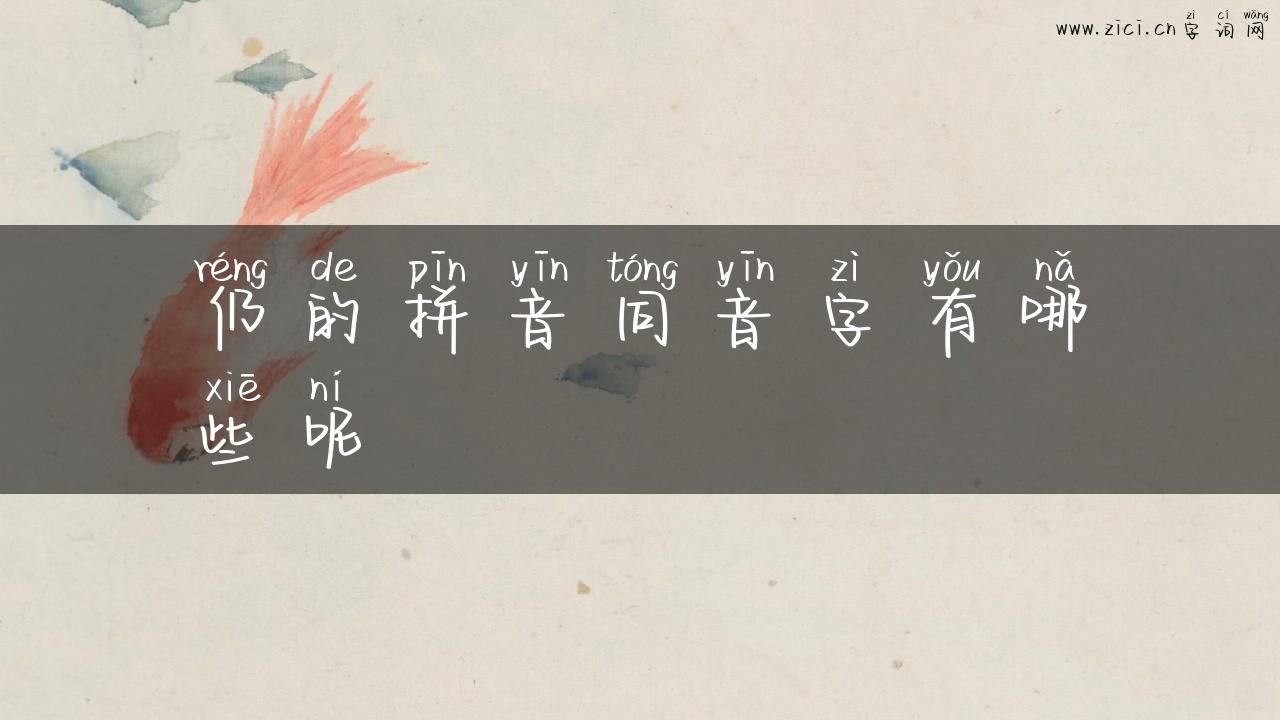 zì cí wǎng
www.zici.cn 字词网
réng de pīn yīn tóng yīn zì yǒu nǎ
仍的拼音同音字有哪
xiē ní
些呢